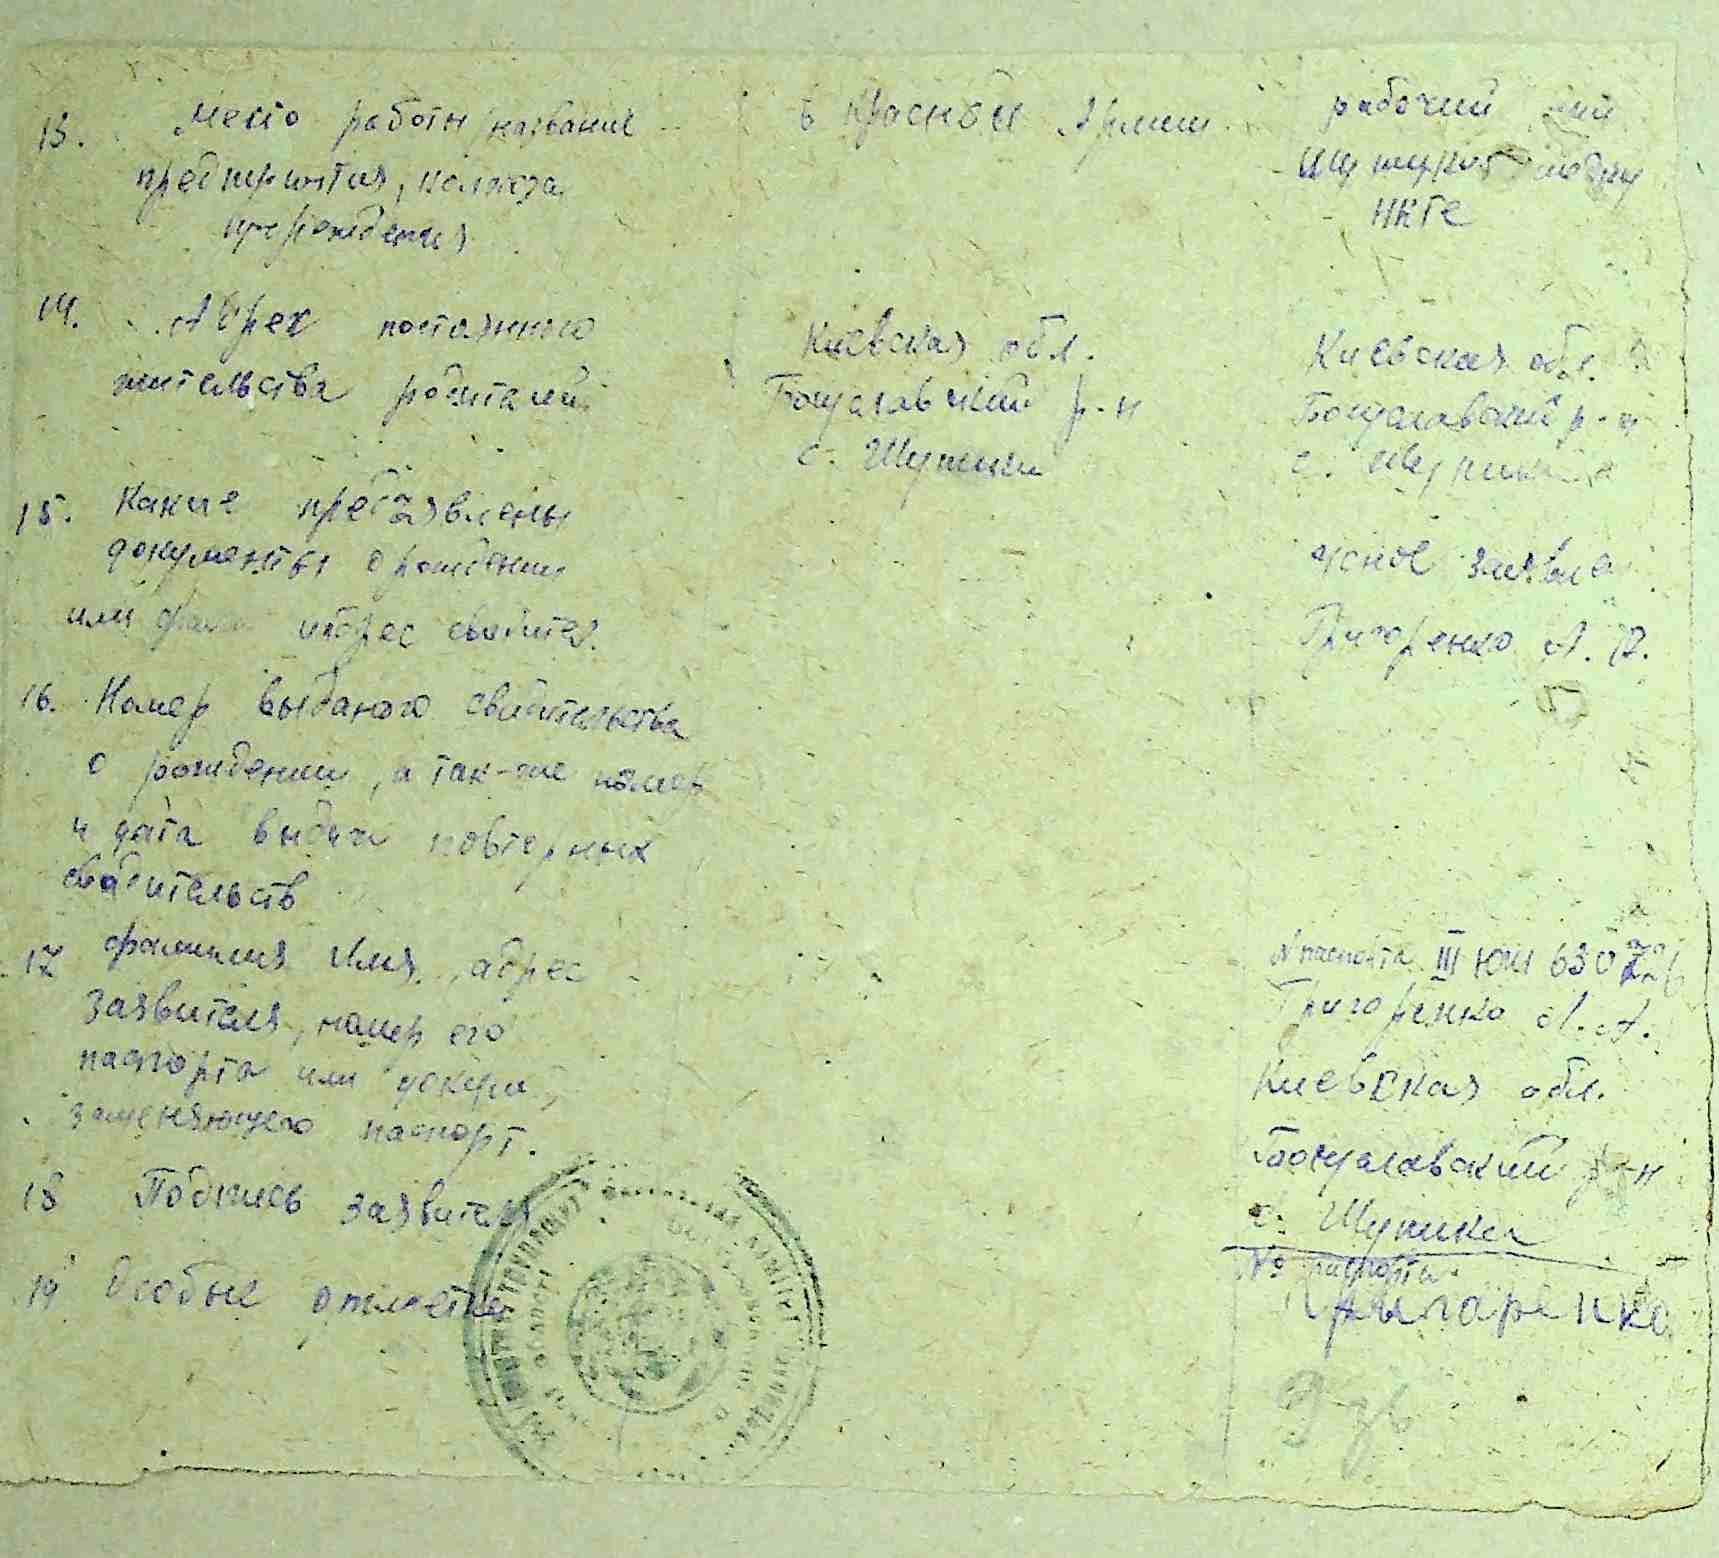 13. Место работы /название
предприятия, колхоза
учреждения
в Красной Армии
рабочий
НКГБ
14. Адрес постоянного
жительства родителей
Киевская обл.
Богуславский р-н
с. Шупики
Киевская обл.
Богуславский р-н
с. Шупики
15. Какие предъявлены
документы о рождении
или адрес свидетел.
устное заявле
Григоренко А.
16. Номер выданого свидительства
о рождении, а так-же номер
и дата выдачи повторных
свидительств
17 Фамилия Имя, адрес
заявителя, номер его
паспорта или докум.,
заменяющего паспорт.
N паспорта III ЮШ 630
Григоренко А. А.
Киевская обл.
Богуславский р-н
с. Шупики
18 Подпись заявителя
№ паспорта
19 Особые отметки